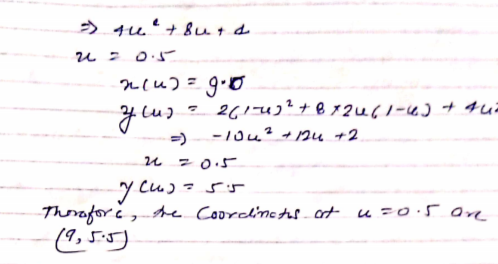 ⇒ 4u² + 8u + 4
u = 0.5
x(u) = 9.0
y(u) = 2(1-u)² + 8*2u(1-u) + 4u²
⇒ -10u² + 12u + 2
u = 0.5
y(u) = 5.5
Therefore, the Coordinates at u = 0.5 are
(9, 5.5)